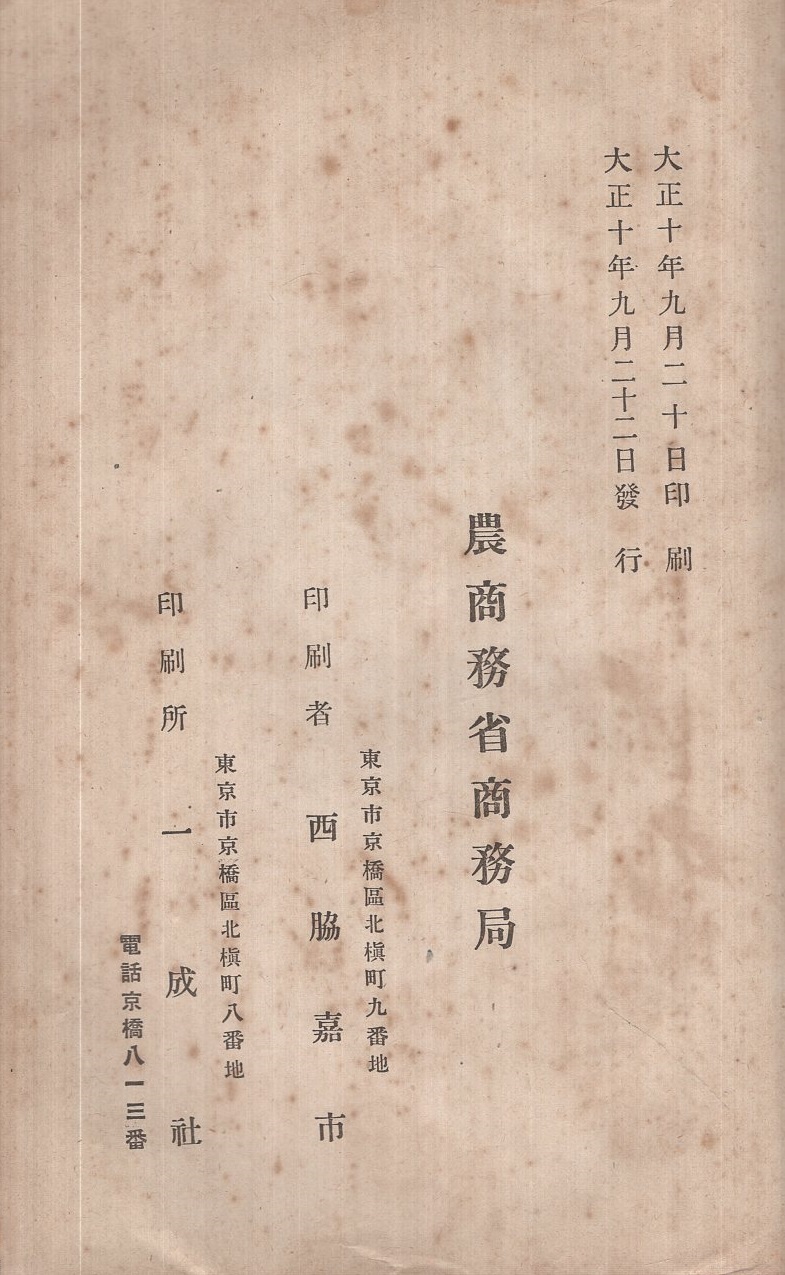 大正十年九月二十日印刷
大正十年九月二十二日發行
農商務省商務局
東京市京橋區北槇町九番地
印刷者 西脇嘉市
東京市京橋區北槇町八番地
印刷所 一成社
電話京橋八一三番